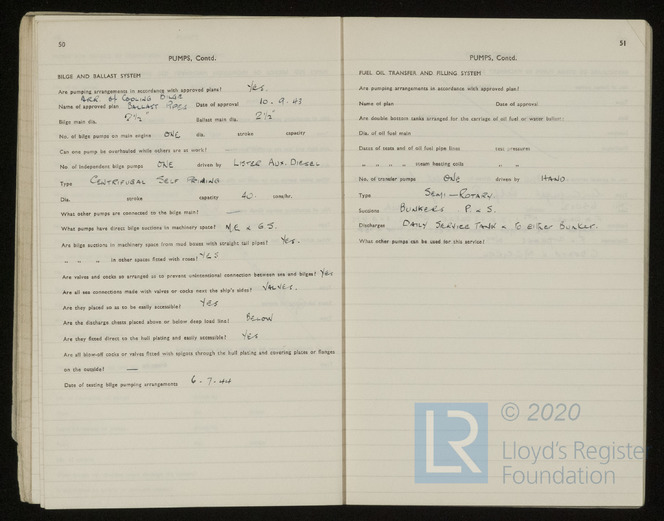 50
PUMPS, Contd.
BILGE AND BALLAST SYSTEM
Are pumping arrangements in accordance with approved plans? Yes.
ARR. OF COOLING BILGE
Name of approved plan BALLAST PIPES Date of approval 10.9.43
Bilge main dia. 2½" Ballast main dia. 2½"
No. of bilge pumps on main engine ONE dia. stroke capacity
Can one pump be overhauled while others are at work? —
No. of independent bilge pumps ONE driven by LISTER AUX. DIESEL
Type CENTRIFUGAL SELF PRIMING
Dia. stroke capacity 40. tons/hr.
What other pumps are connected to the bilge main? —
What pumps have direct bilge suctions in machinery space? M.E & G.S.
Are bilge suctions in machinery space from mud boxes with straight tail pipes? Yes.
„ „ „ in other spaces fitted with roses? YES
Are valves and cocks so arranged as to prevent unintentional connection between sea and bilges? YES
Are all sea connections made with valves or cocks next the ship's sides? VALVES.
Are they placed so as to be easily accessible? YES
Are the discharge chests placed above or below deep load line? BELOW
Are they fitted direct to the hull plating and easily accessible? YES
Are all blow-off cocks or valves fitted with spigots through the hull plating and covering plates or flanges
on the outside? —
Date of testing bilge pumping arrangements 6.7.44
51
PUMPS, Contd.
FUEL OIL TRANSFER AND FILLING SYSTEM
Are pumping arrangements in accordance with approved plan?
Name of plan Date of approval
Are double bottom tanks arranged for the carriage of oil fuel or water ballast?
Dia. of oil fuel main
Dates of tests and of oil fuel pipe lines test pressures
„ „ „ „ steam heating coils „ „
No. of transfer pumps ONE driven by HAND
Type SEMI-ROTARY.
Suctions BUNKERS P. & S.
Discharges DAILY SERVICE TANK & TO EITHER BUNKER.
What other pumps can be used for this service?
LR
© 2020
Lloyd's Register
Foundation